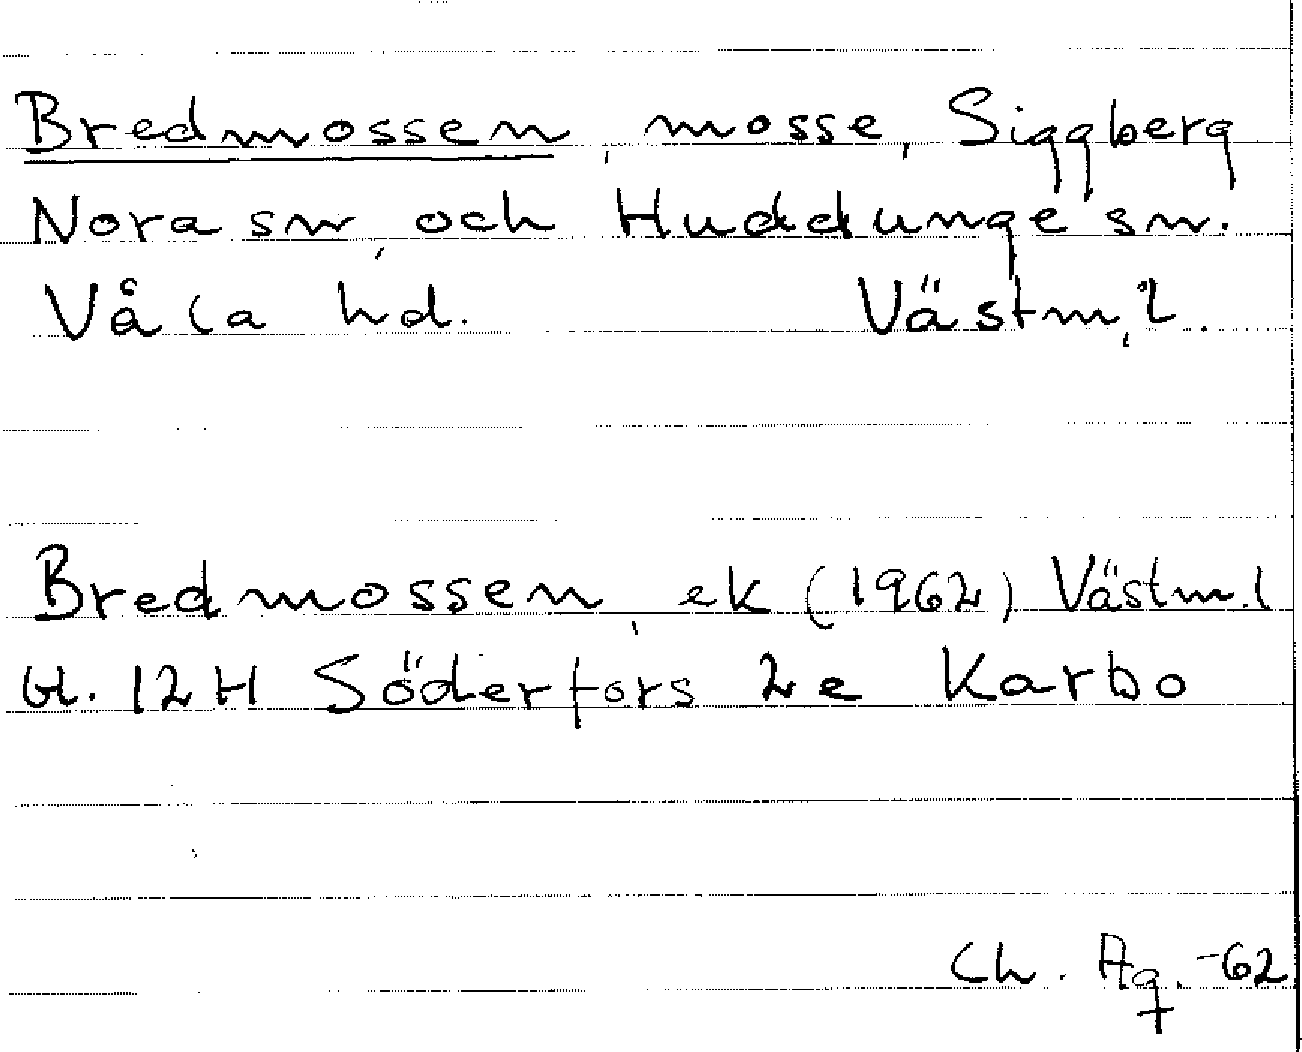 Bredmossen, mosse, Siggberg
Nora sn, och Huddunge sn.
Våla hd. Västm, l.
Bredmossen, ek (1962) Västm.l
bl. 12H Söderfors 2e Karbo
Ch. Ag. -62